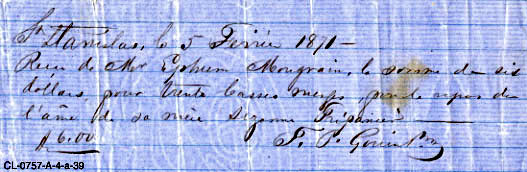 St Stanislas, le 5 Février 1871 -
Recu de Mr Ephrem Mongrain, la somme de six
dollars, pour trente basses messes, pour le repos de
l'âme de sa mère Frigonne
$6.00 F. P.
CL-0757-A-4-a-39